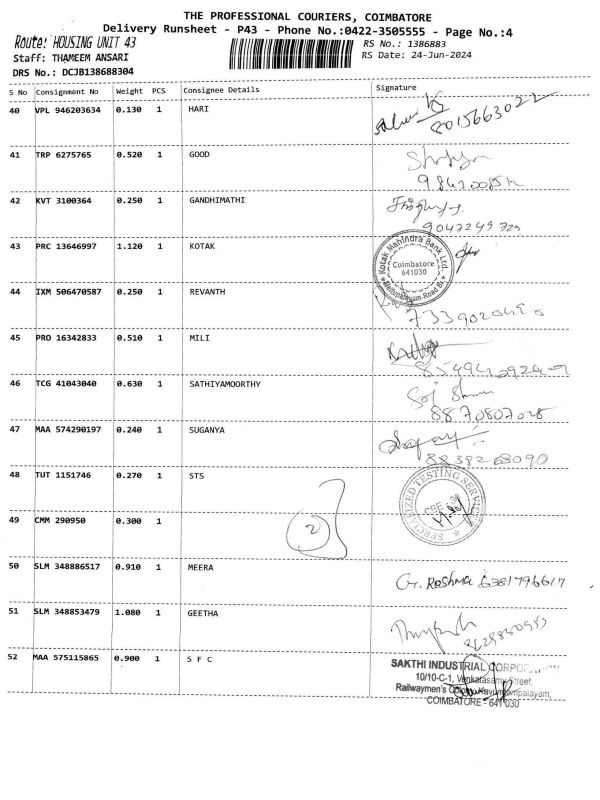 THE PROFESSIONAL COURIERS, COIMBATORE
Delivery Runsheet - P43 - Phone No.:0422-3505555 - Page No.:4
Route: HOUSING UNIT 43
RS No.: 1386883
Staff: THAMEEM ANSARI
RS Date: 24-Jun-2024
DRS No.: DCJB138688304
S No Consignment No Weight PCS Consignee Details Signature
40 VPL 946203634 0.130 1 HARI
8015663022
41 TRP 6275765 0.520 1 GOOD
42 KVT 3100364 0.250 1 GANDHIMATHI
9047249729
43 PRC 13646997 1.120 1 KOTAK
Kotak Mahindra Bank Ltd.
Coimbatore
641030
Mettupalayam Road Br.
44 IXM 506470587 0.250 1 REVANTH
45 PRO 16342833 0.510 1 MILI
46 TCG 41043040 0.630 1 SATHIYAMOORTHY
8870807028
47 MAA 574290197 0.240 1 SUGANYA
8838268090
48 TUT 1151746 0.270 1 STS
SPECIALIZED TESTING SERVICE
CBE - 30
49 CMM 290950 0.300 1
2
50 SLM 348886517 0.910 1 MEERA
G. Roshma 6381796617
51 SLM 348853479 1.080 1 GEETHA
52 MAA 575115865 0.900 1 S F C
SAKTHI INDUSTRIAL
10/10-C-1, Venkatasamy Street,
Railwaymen's Colony, Kavundampalayam,
COIMBATORE - 641 030